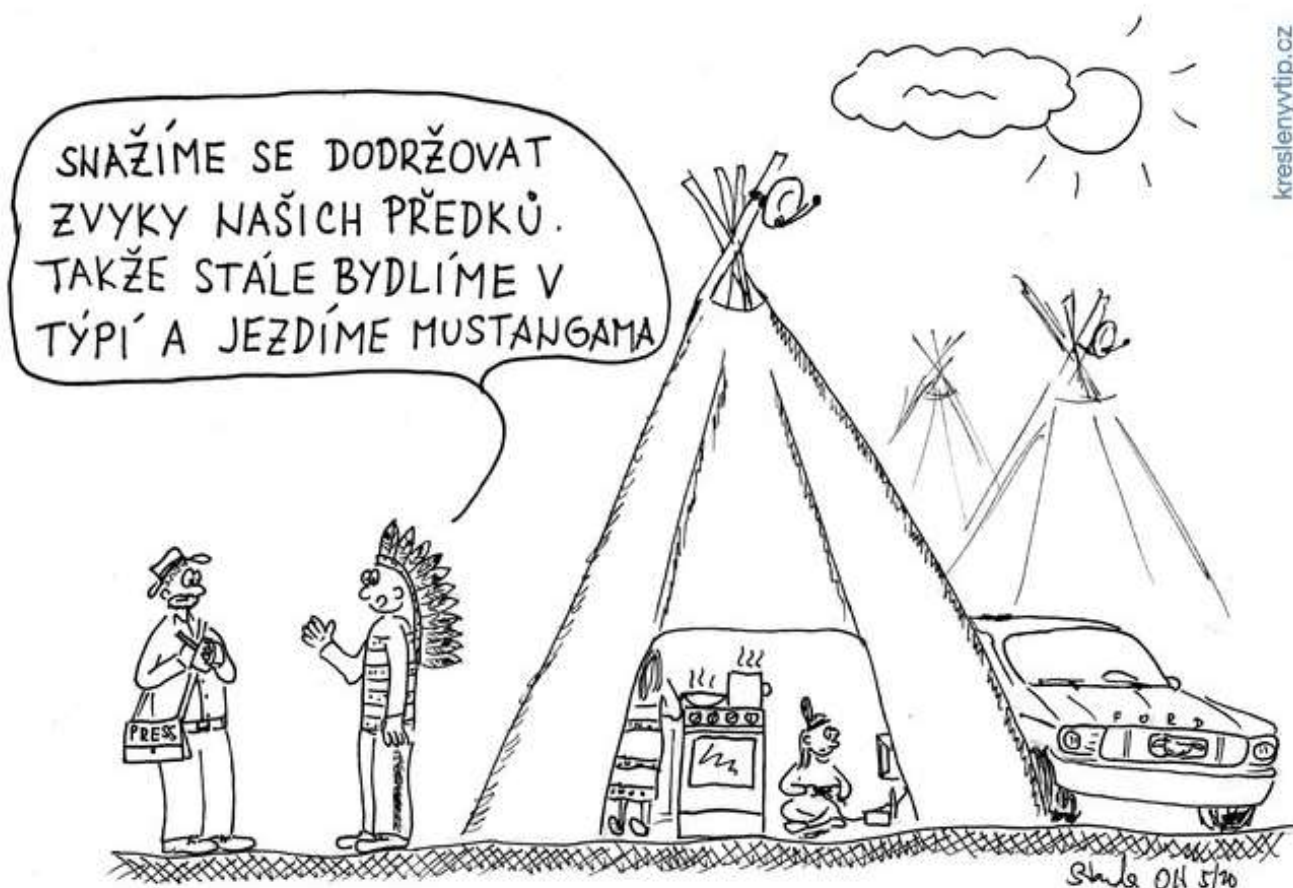 SNAŽÍME SE DODRŽOVAT
ZVYKY NAŠICH PŘEDKŮ.
TAKŽE STÁLE BYDLÍME V
TÝPÍ A JEZDÍME MUSTANGAMA
PRESS
FORD
kreslenyvtip.cz
OH 5/20